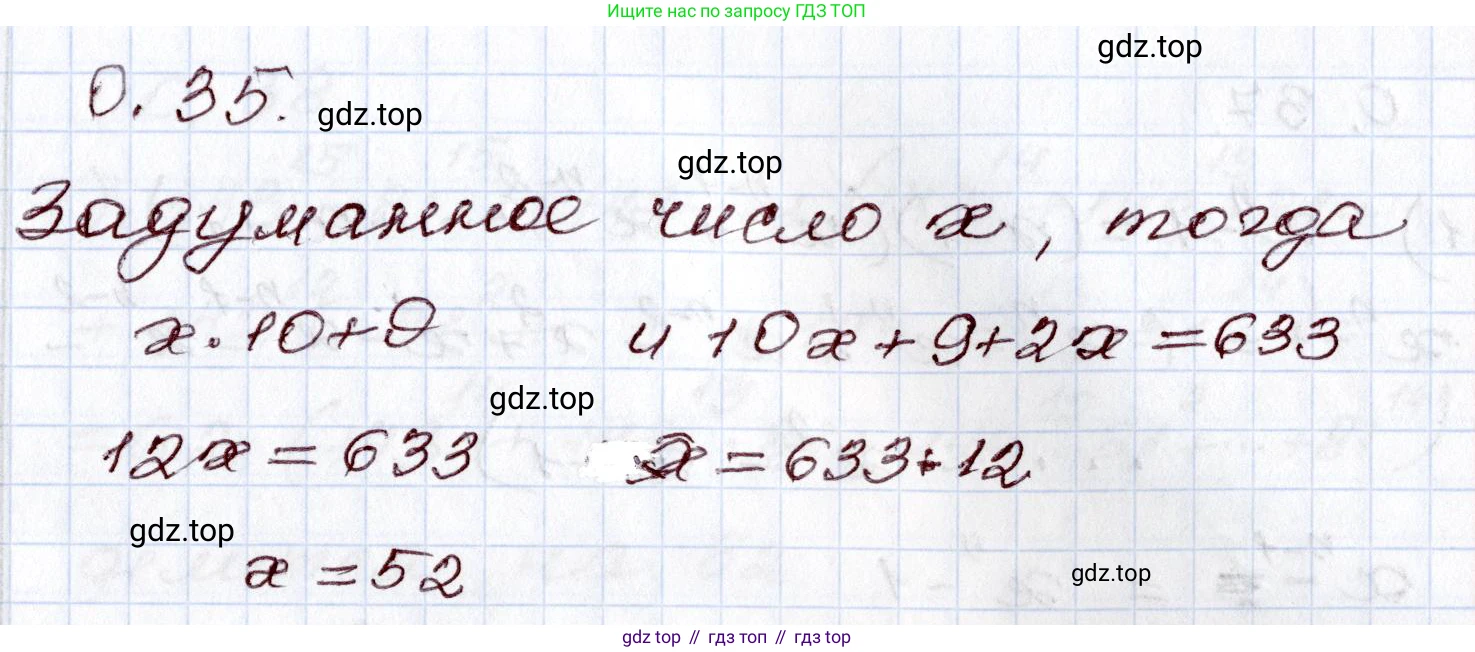 Ищите нас по запросу ГДЗ ТОП
gdz.top
0.35.
gdz.top
gdz.top
Задуманное число x, тогда
x·10+9 и 10x+9+2x=633
gdz.top
12x=633 x=633÷12
gdz.top
x=52
gdz.top
gdz top // гдз топ // гдз top